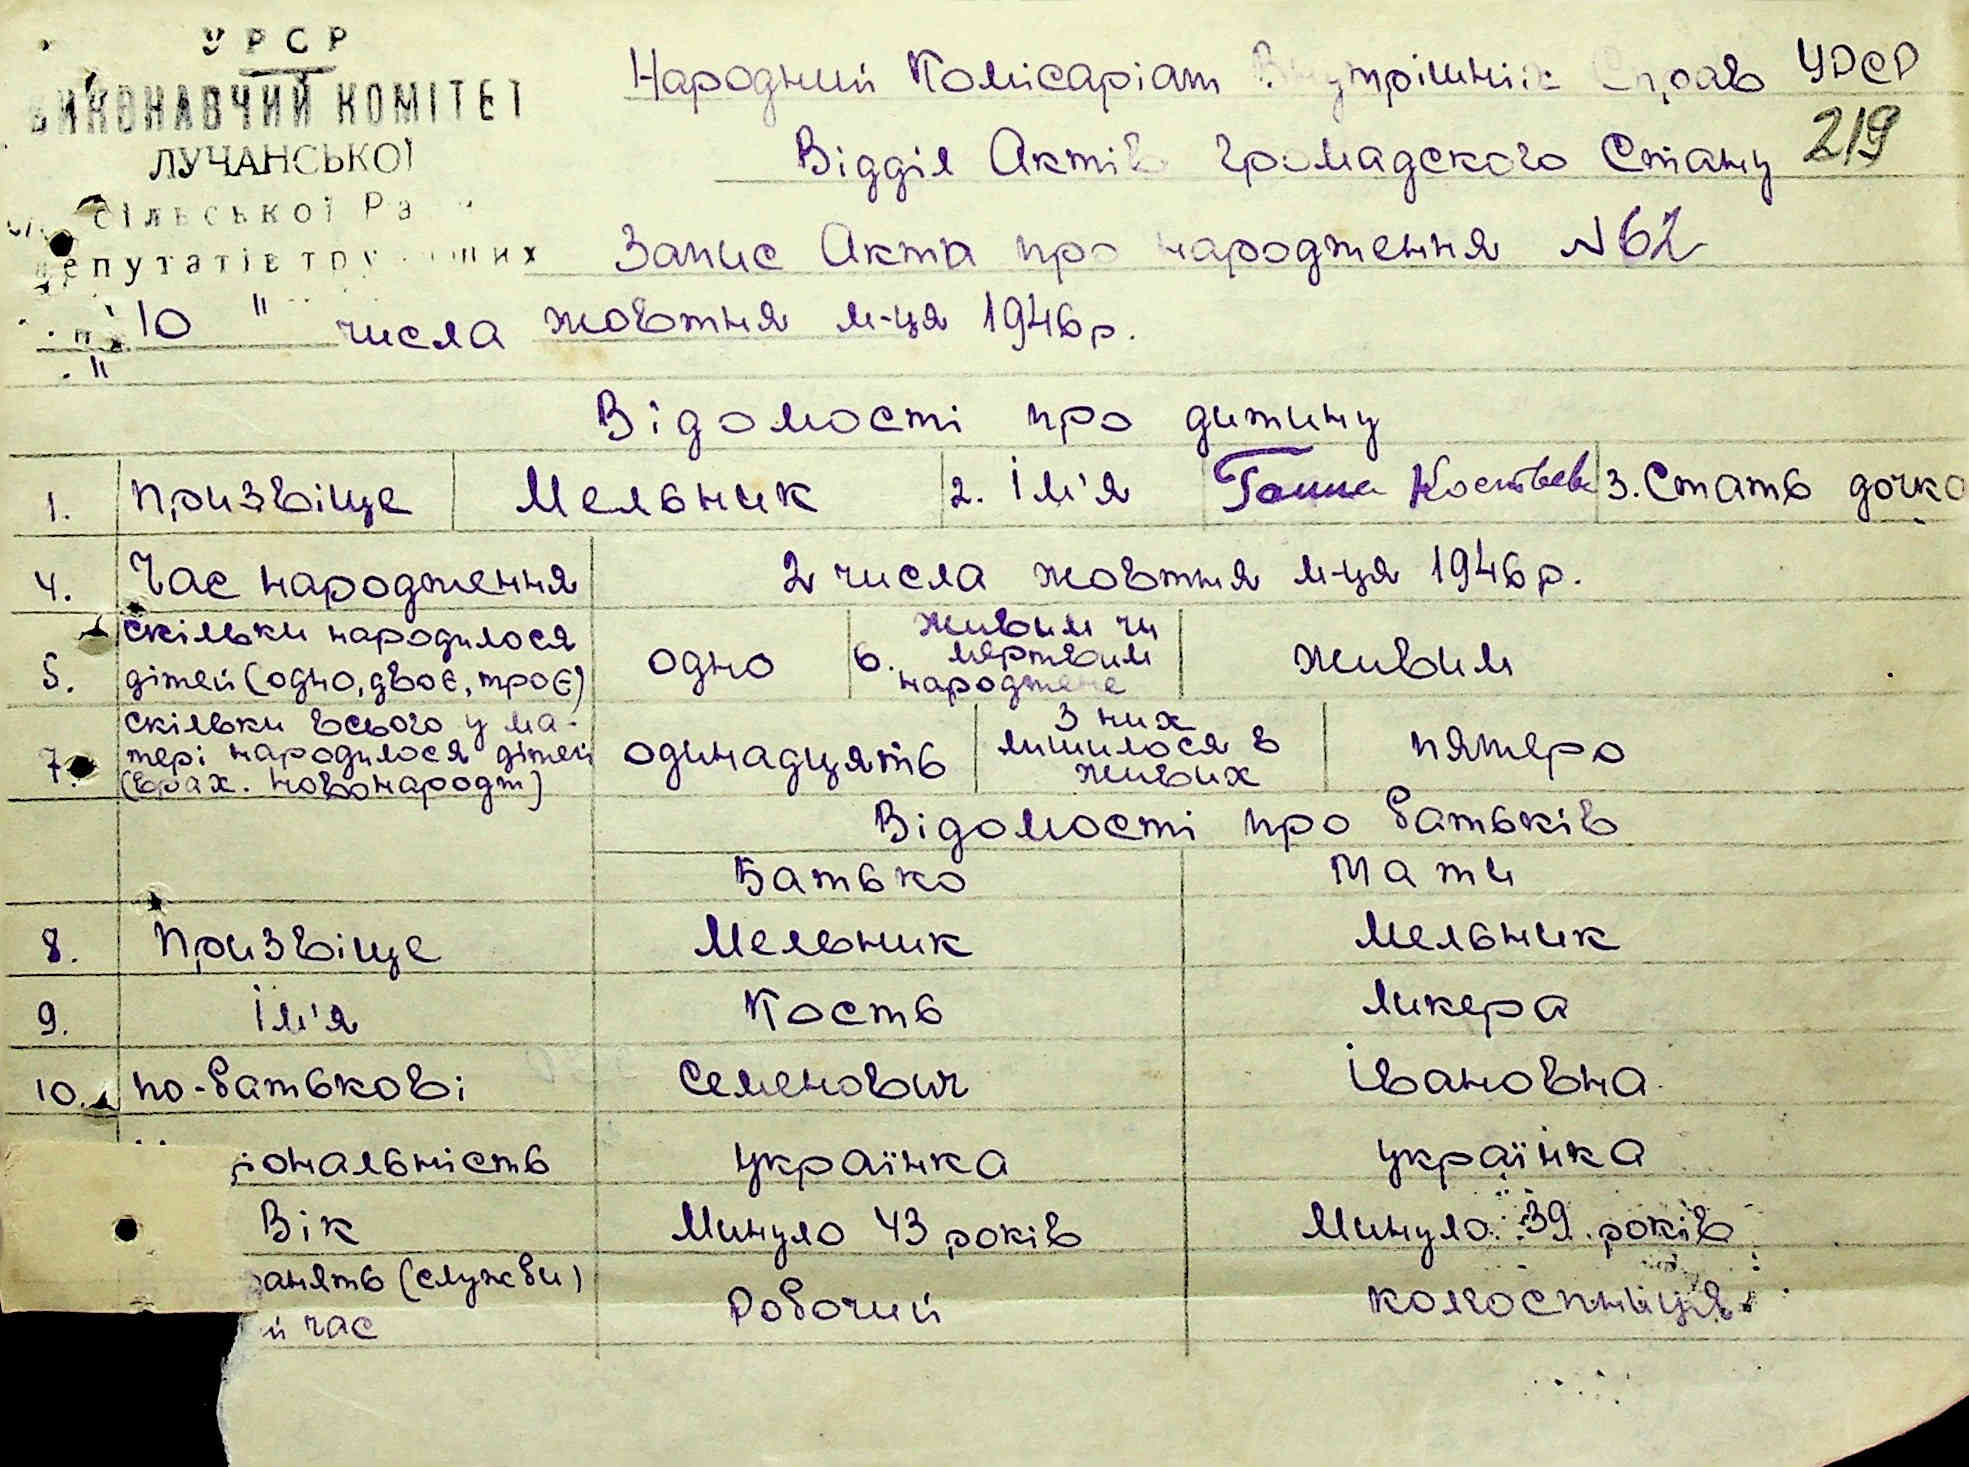 УРСР
ВИКОНАВЧИЙ КОМІТЕТ
ЛУЧАНСЬКОЇ
сільської Ра
депутатів
Народний Комісаріат Внутрішніх Справ УРСР
219
Відділ Актів громадского Стану
Запис Акта про народження №62
"10" числа жовтня м-ця 1946р.
Відомості про дитину
1. Призвіще Мельник 2. Ім'я Ганна 3. Стать дочка
4. Час народження 2 числа жовтня м-ця 1946р.
5. скільки народилося дітей (одно, двоє, троє) одно 6. живим чи мертвим народжене живим
7. скільки всього у матері народилося дітей (врах. новонародж) одинадцять з них лишилося в живих пятеро
Відомості про батьків
Батько Мати
8. Призвіще Мельник Мельник
9. Ім'я Кость Ликера
10. по-батькові Семенович Івановна
іональність українка українка
Вік Минуло 43 років Минуло 39 років
анять (служби) Робочий колгоспниця
й час